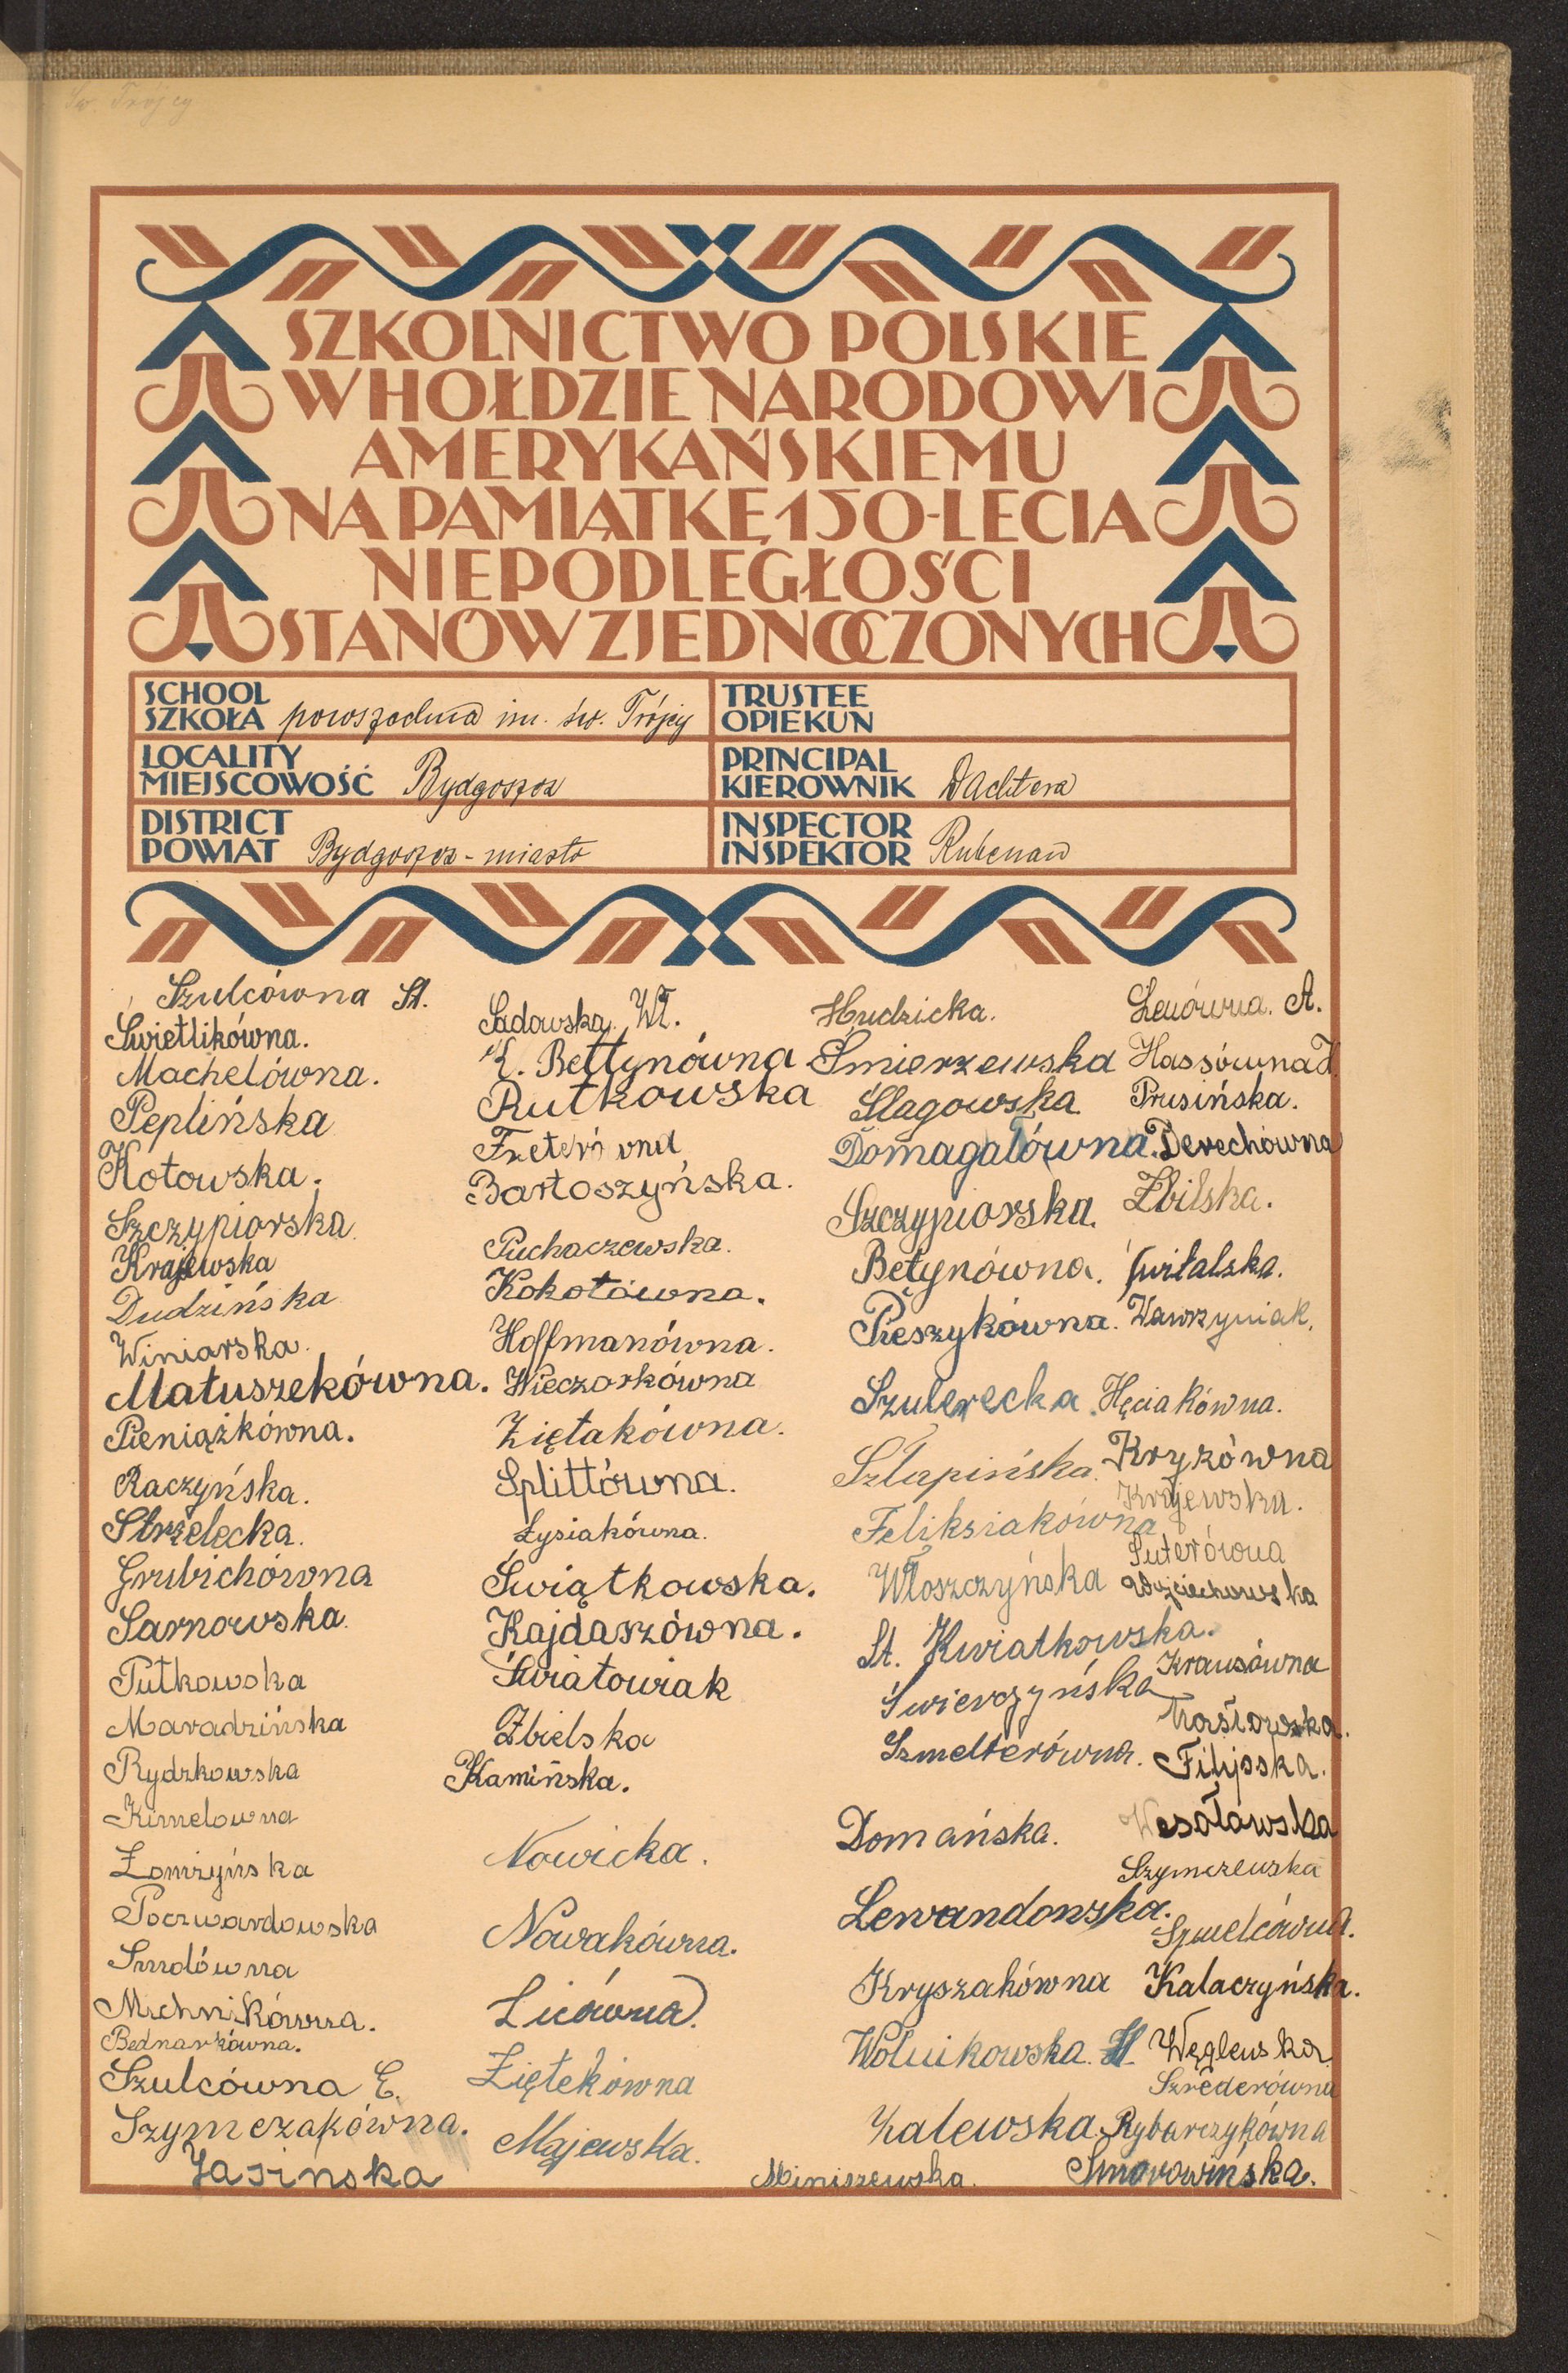 Św. Trójcy
SZKOLNICTWO POLSKIE
W HOŁDZIE NARODOWI
AMERYKAŃSKIEMU
NA PAMIĄTKĘ 150-LECIA
NIEPODLEGŁOŚCI
STANÓW ZJEDNOCZONYCH
SCHOOL
SZKOŁA powszechna im. św. Trójcy
TRUSTEE
OPIEKUN
LOCALITY
MIEJSCOWOŚĆ Bydgoszcz
PRINCIPAL
KIEROWNIK Wachtera
DISTRICT
POWIAT Bydgoszcz - miasto
INSPECTOR
INSPEKTOR Rubenau
Szulcówna St.
Świetlikówna.
Machelówna.
Peplińska
Kotowska.
Szczypiorska
Krajewska
Dudzińska
Winiarska.
Matuszekówna.
Pieniążkówna.
Raczyńska.
Strzelecka.
Grubichówna
Sarnowska.
Putkowska
Maradzińska
Rydzkowska
Kimelowna
Łomżyńska
Poczwardowska
Smolówna
Michnikówna.
Bednarkówna.
Szulcówna E.
Szymczakówna.
Jasińska
Sadowska Wł.
K. Bettynówna
Rutkowska
Freterówna
Bartoszyńska.
Puchaczewska.
Kokotówna.
Hoffmanówna.
Wieczorkówna
Ziętakówna.
Splittówna.
Łysiakówna.
Świątkowska.
Kajdaszówna.
Światowiak
Zbielska
Kamińska.
Nowicka.
Nowakówna.
Licówna.
Ziętekówna
Majewska.
Hudzicka.
Śmierzewska
Slagowska
Domagałówna.
Szczypiorska.
Betynówna.
Pieszykówna.
Szulerecka.
Szlapińska.
Feliksiakówna
Włoszczyńska
St. Kwiatkowska.
Świerczyńska
Szmelterówna.
Domańska.
Lewandowska.
Kryszakówna
Wolnikowska. H.
Zalewska.
Miniszewska.
Lenówna. A.
Hassówna J.
Prusińska.
Derechówna
Zbilska.
Świtalska.
Wawrzyniak.
Hęciakówna.
Kryzówna
Krajewska.
Suterówna
Wojciechowska
Krausówna
Filipska.
Wesołowska
Szymczewska
Szmelcówna.
Kalaczyńska.
Węglewska
Szrederówna
Rybarczykówna
Smorowińska.